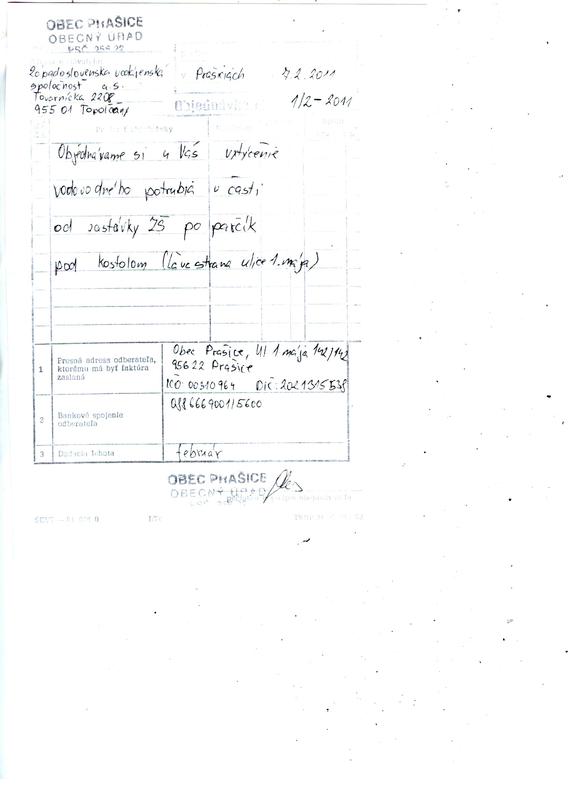 OBEC PRAŠICE
OBECNÝ ÚRAD
PSČ 956 22
Západoslovenská vodárenská
spoločnosť a.s.
Tovarnícka 2208
955 01 Topoľčany
v Prašiciach 7.2.2011
Objednávka 1/2-2011
Objednávame si u Vás vytýčenie
vodovodného potrubia v časti
od zastávky ZŠ po parčík
pod kostolom (ľavá strana ulice 1. mája)
1 Presná adresa odberateľa, ktorému má byť faktúra zaslaná
Obec Prašice, Ul 1 mája 142/142
95622 Prašice
IČO: 00310964 DIČ: 2021315538
2 Bankové spojenie odberateľa
0886669001/5600
3 Dodacia lehota
február
OBEC PRAŠICE
OBECNÝ ÚRAD